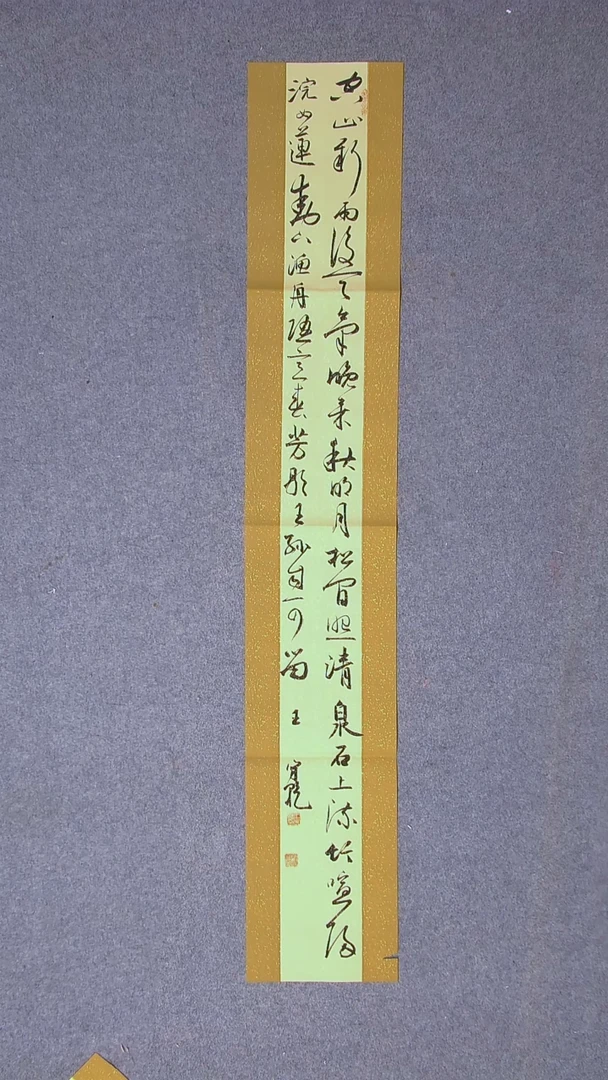 空山新雨後天氣晚来秋明月松間照清泉石上流竹喧歸
浣女蓮動下漁舟隨意春芳歇王孫自可留 王